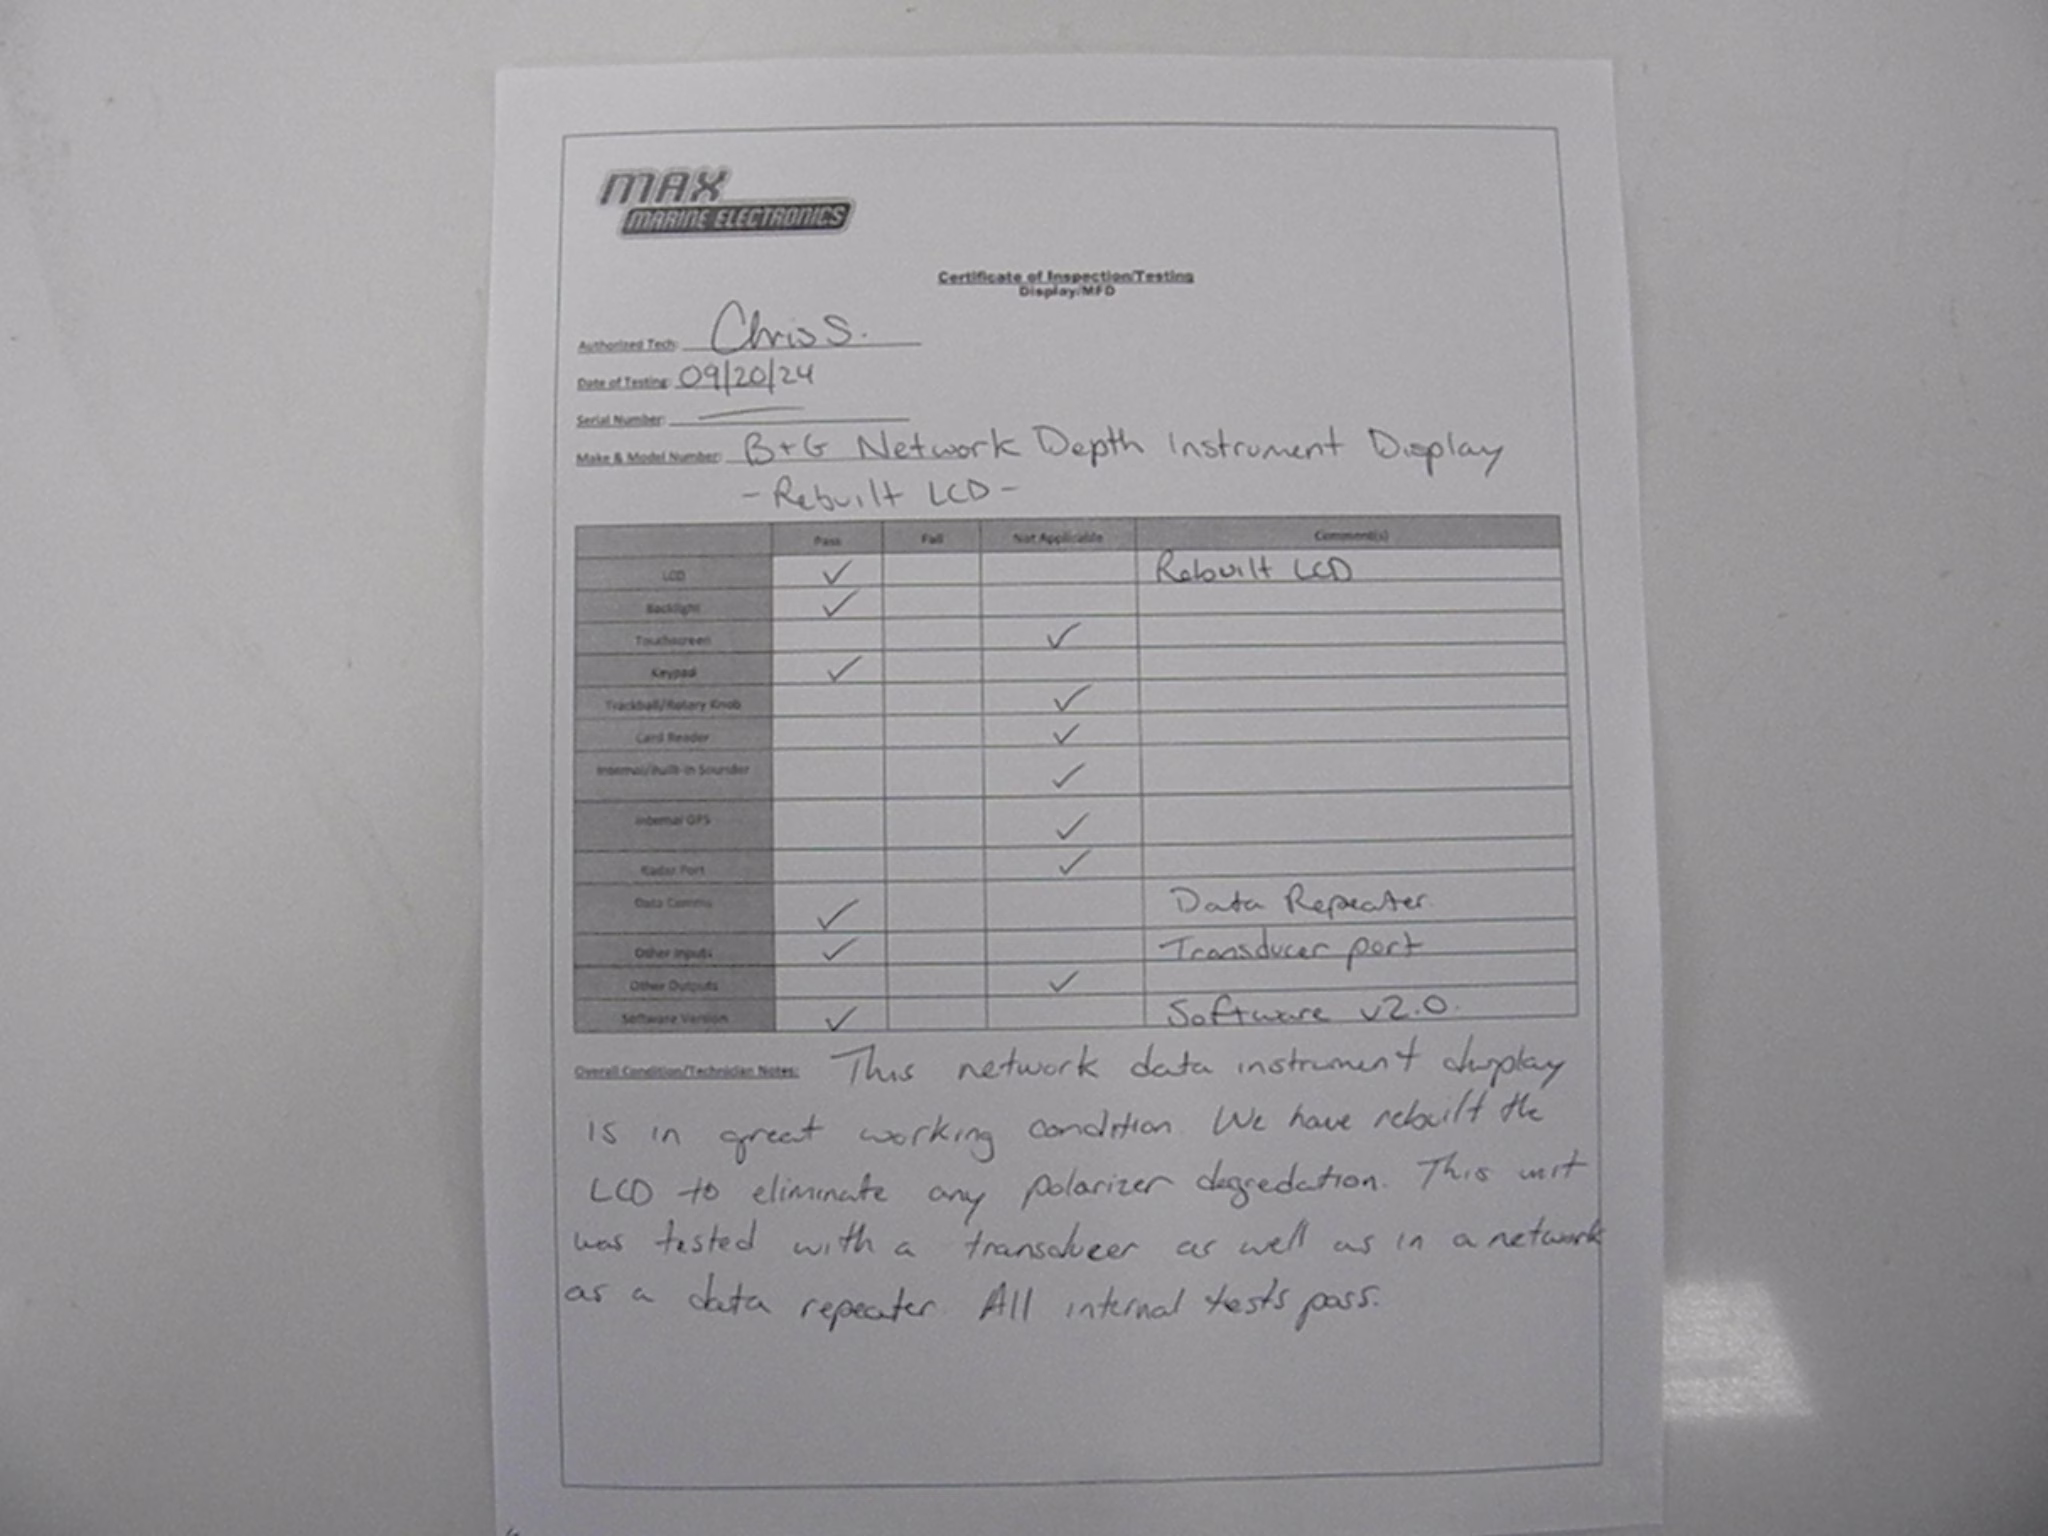 MAX
MARINE ELECTRONICS
Certificate of Inspection/Testing
Display/MFD
Authorized Tech: Chris S.
Date of Testing: 09/20/24
Serial Number: —
Make & Model Number: B+G Network Depth Instrument Display
- Rebuilt LCD -
Pass Fail Not Applicable Comment(s)
LCD ✓ Rebuilt LCD
Backlight ✓
Touchscreen ✓
Keypad ✓
Trackball/Rotary Knob ✓
Card Reader ✓
Internal/Built-in Sounder ✓
Internal GPS ✓
Radar Port ✓
Data Comms ✓ Data Repeater
Other Inputs ✓ Transducer port
Other Outputs ✓
Software Version ✓ Software v2.0.
Overall Condition/Technician Notes: This network data instrument display
is in great working condition. We have rebuilt the
LCD to eliminate any polarizer degredation. This unit
was tested with a transducer as well as in a network
as a data repeater. All internal tests pass.